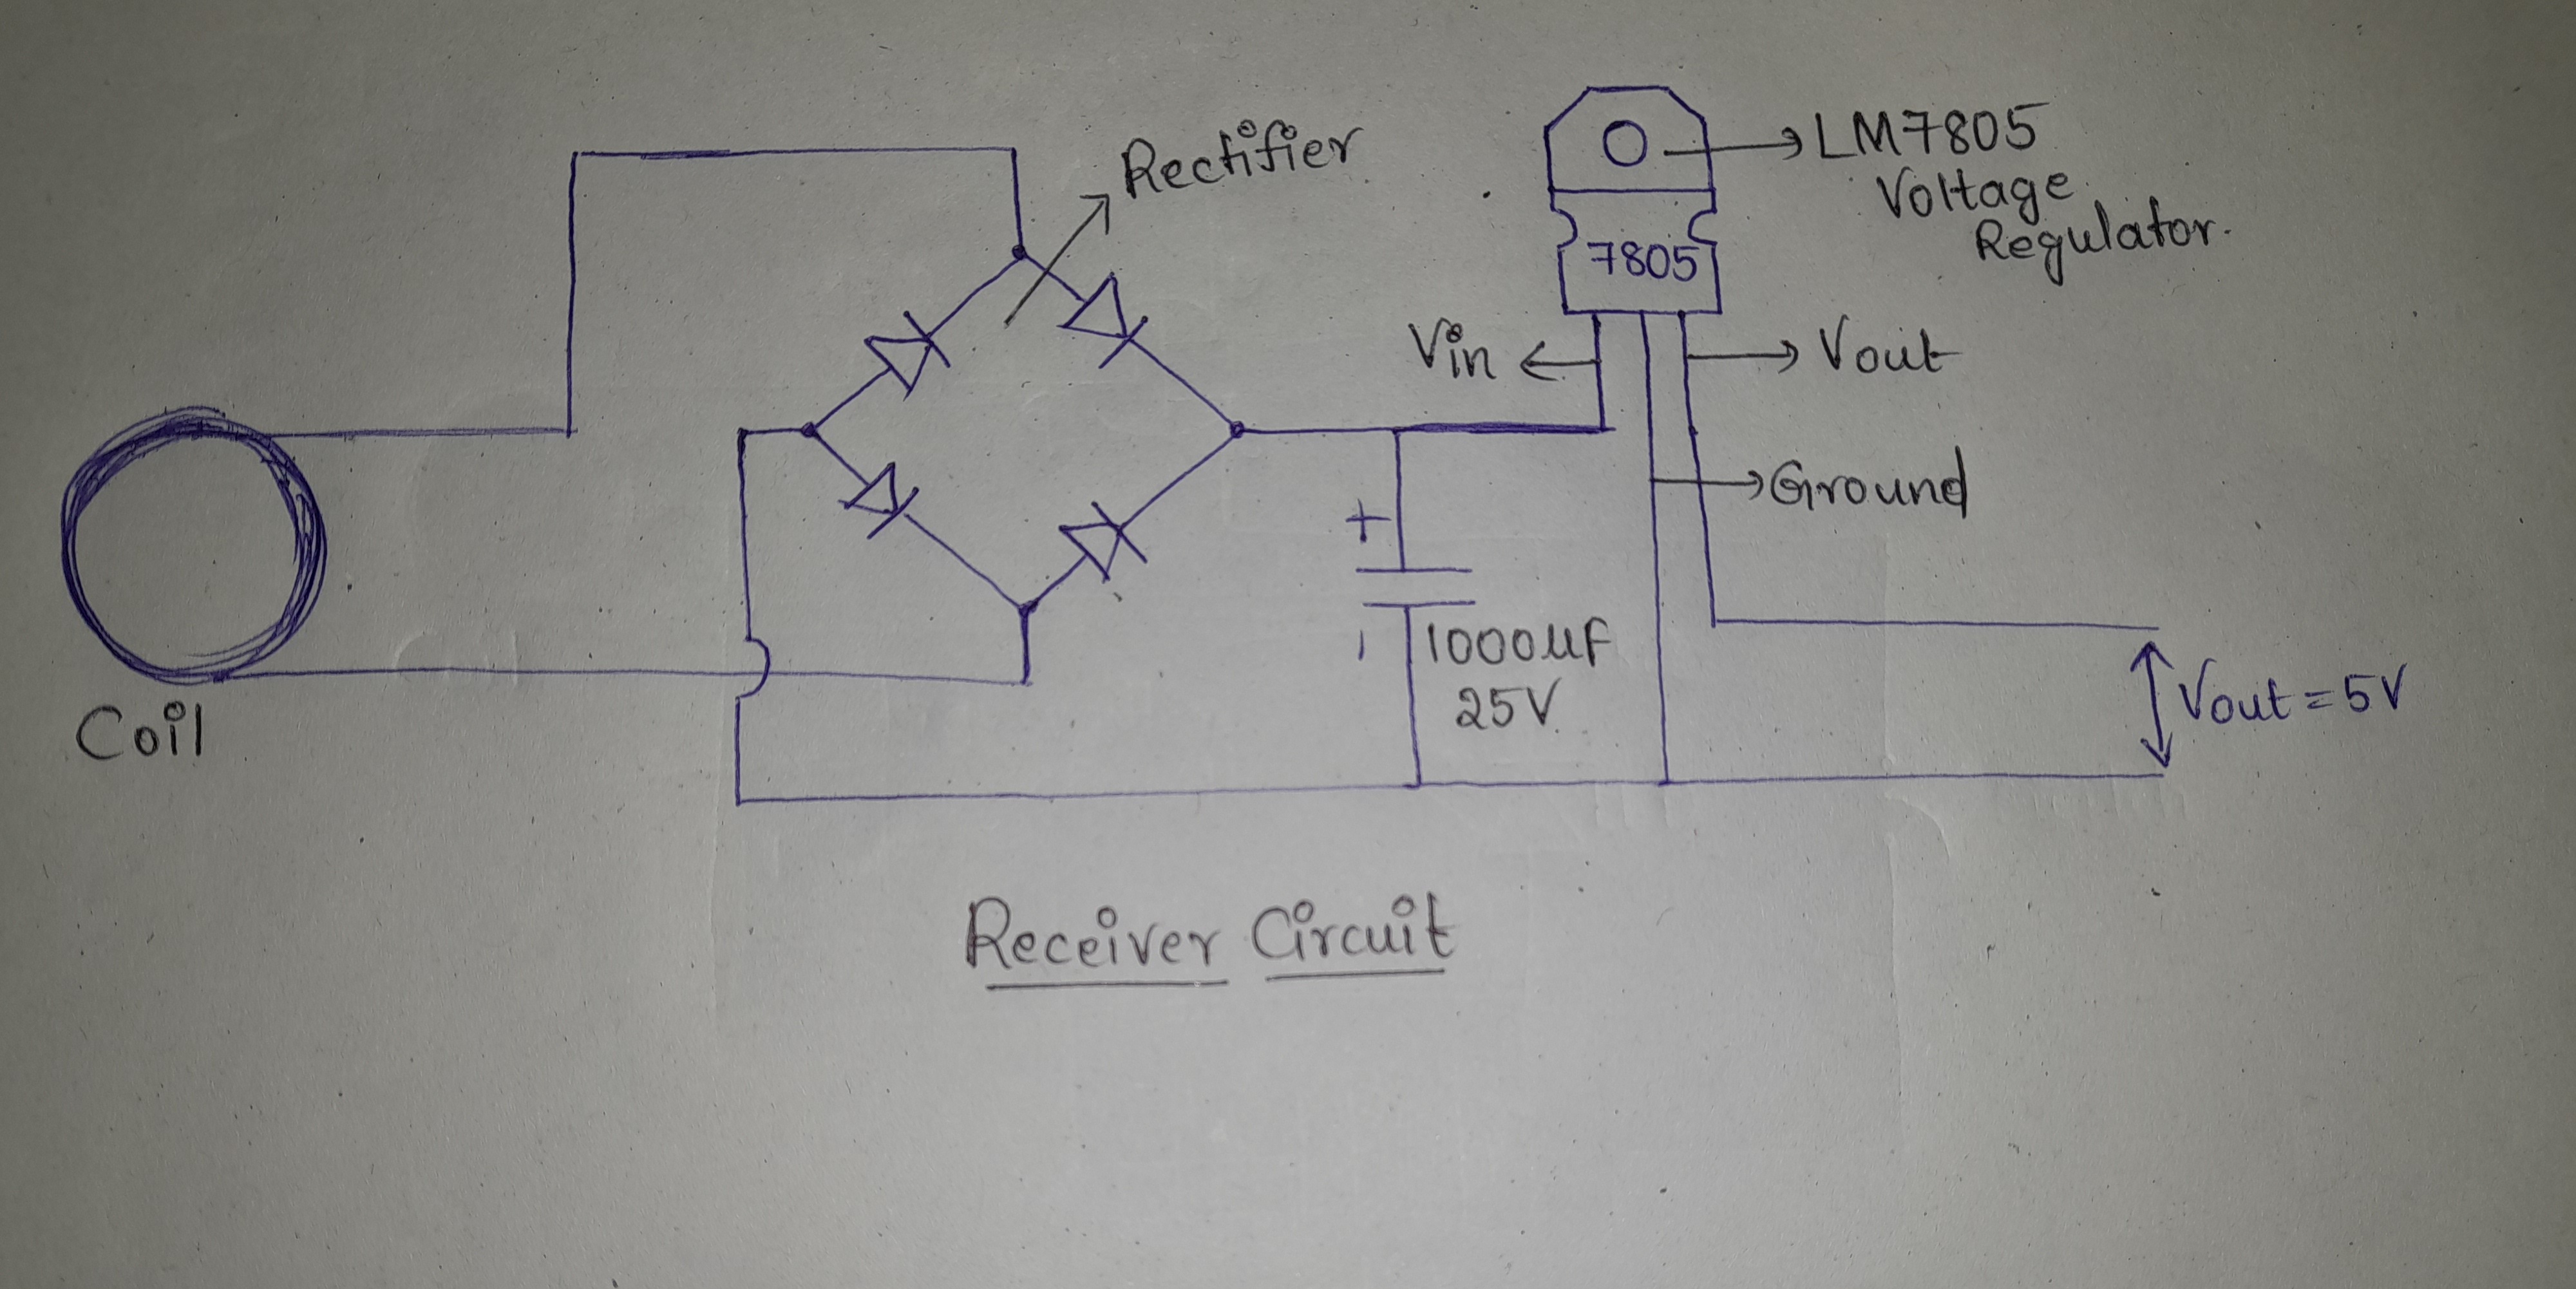 Rectifier
LM7805
Voltage
Regulator.
7805
Vin
Vout
Ground
+
-
1000uF
25V
Vout = 5V
Coil
Receiver Circuit